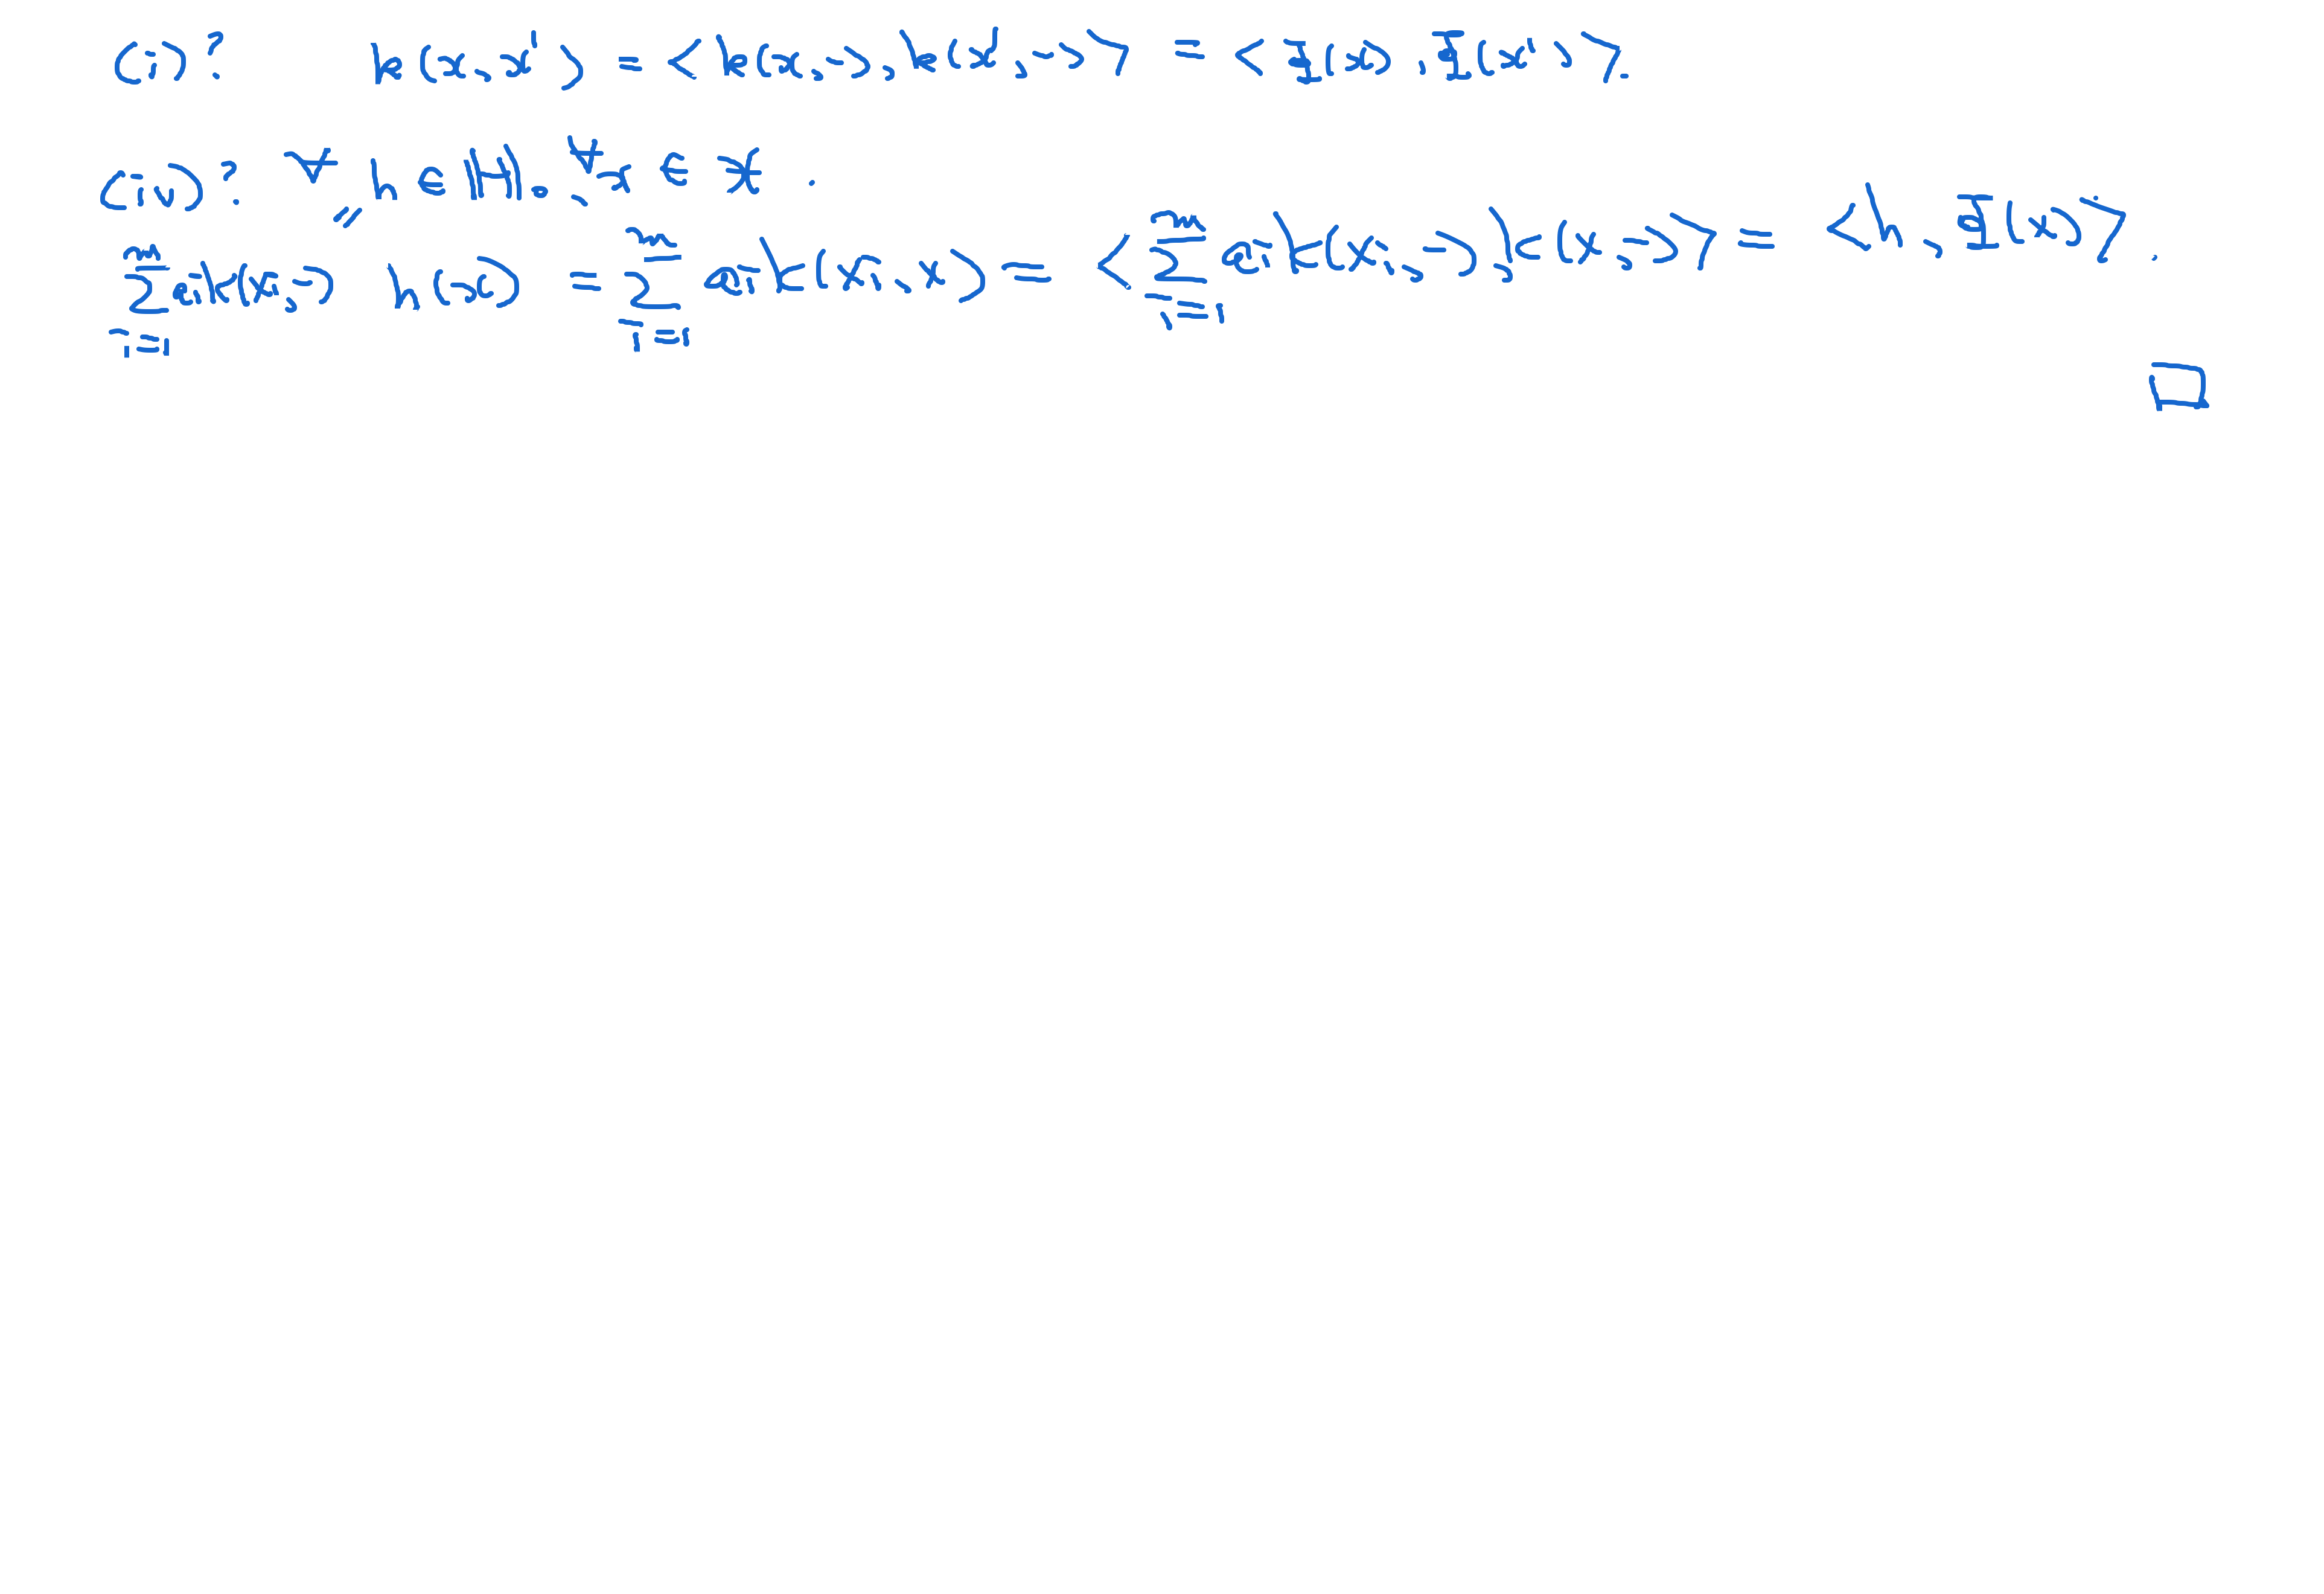 (i)? k(x,x') = <k(x,·),k(x',·)> = <Φ(x),Φ(x')>.
(ii)? ∀h∈H.∀x∈X.
∑_{i=1}^{m} α_i k(x_i,·) h(x) = ∑_{i=1}^{m} α_i k(x_i,x) = <∑_{i=1}^{m} α_i k(x_i,·),k(x,·)> = <h,Φ(x)>.
□